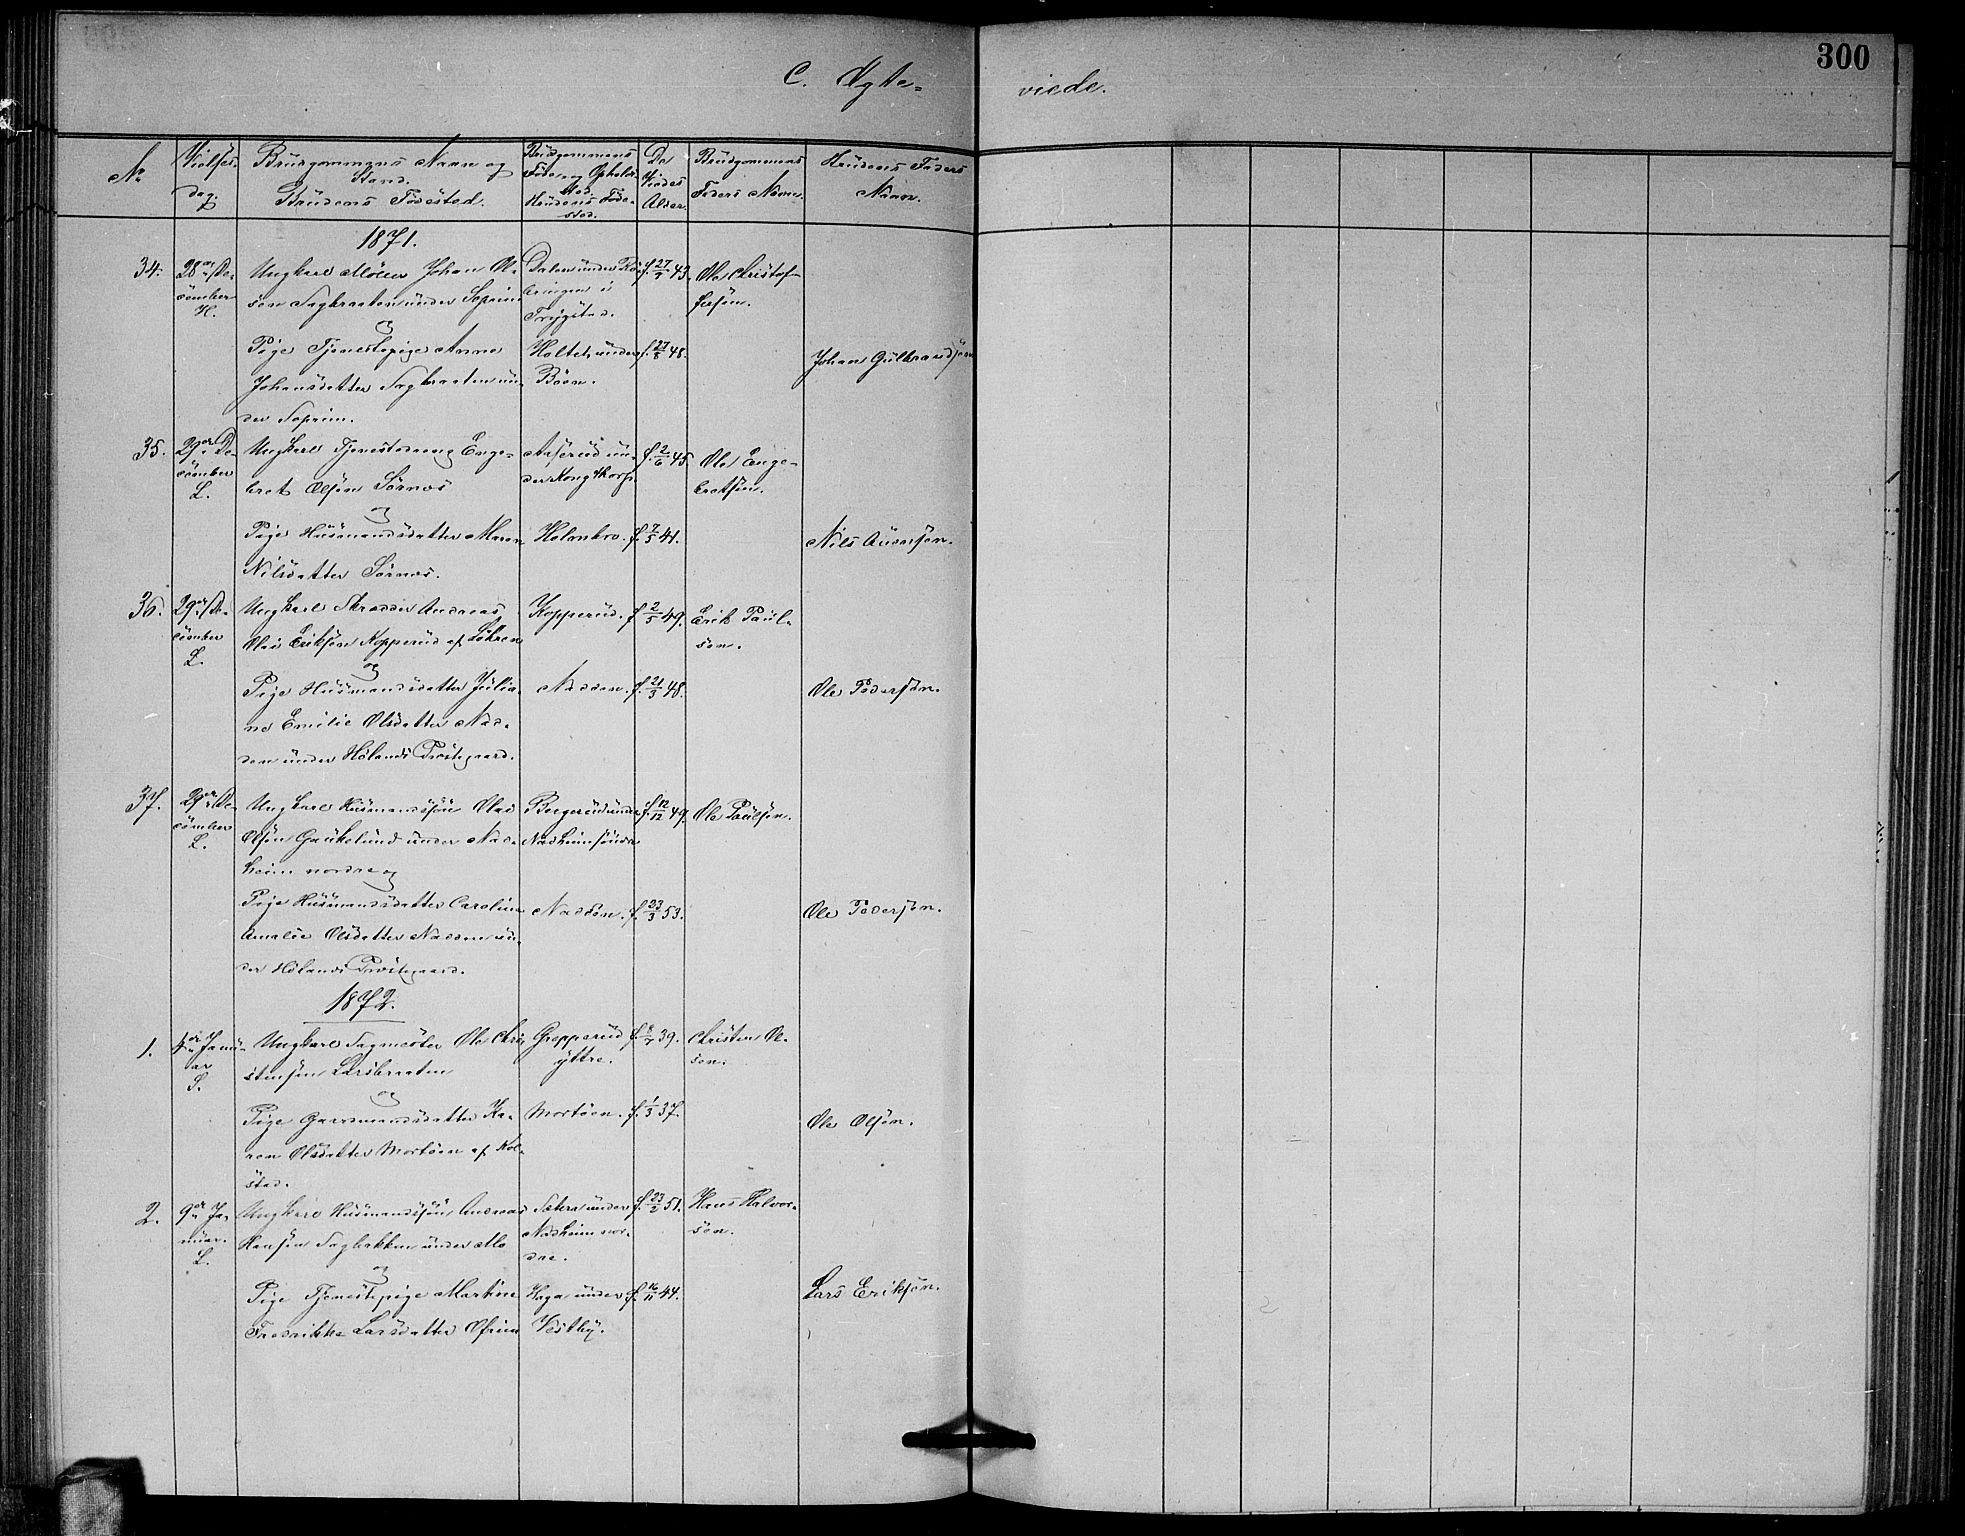 300
C. Ægte- viede.
No
Vielses-
dag.
Brudgommens Navn og
Stand.
Brudens Fødested.
Brudgommens
Føde- og Opholds-
sted.
Brudens Føde-
sted.
De
Viedes
Alder.
Brudgommens
Faders Navn.
Brudens Faders
Navn.
1871.
34. 28de De-
cember
H.
Ungkarl Møller Johan Ol-
sen Sagbraaten under Soprim
og
Dalen under
i
Trygstad.
f. 27/7 43.
Ole Christof-
fersøn.
Pige Tjenestepige Anne
Johansdatter Sagbraaten un-
der Soprim.
Holtet under
Bøen.
f. 27/5 48.
Johan Gulbrandsøn
35. 29de De-
cember
L.
Ungkarl Tjenestedreng Enge-
bret Olsøn Sørnæs
og
Aaserud un-
der Kongstorp.
f. 2/6 45.
Ole Enge-
bretsøn.
Pige Husmandsdatter Maren
Nilsdatter Sørnæs.
Holmbro.
f. 7/5 41.
Nils Auensøn.
36. 29de De-
cember
L.
Ungkarl Skrædder Andreas
Olai Eriksøn Kopperud af Løkren
og
Kopperud.
f. 2/5 49.
Erik Paul-
søn.
Pige Husmandsdatter Julia-
ne Emilie Olsdatter Nad-
den under Hølands Præstegaard.
Nadden.
f. 21/3 48.
Ole Pedersøn.
37. 29de De-
cember
L.
Ungkarl Husmandssøn Olai
Olsøn Gaukelund under Nad-
heim nordre og
Bergerud under
Nadheim søndre
f. 12/12 49.
Ole Paulsøn.
Pige Husmandsdatter Caroline
Amalie Olsdatter Nadden un-
der Hølands Præstegaard.
Nadden.
f. 23/3 53.
Ole Pedersøn.
1872.
1. 4de Janu-
ar
S.
Ungkarl Sagmester Ole Chri-
stensøn Larsbraaten
og
Gropperud
yttre.
f. 8/7 39.
Christen Ol-
søn.
Pige Gaardmandsdatter Ka-
ren Olsdatter Mortøen af Kol-
stad.
Mortøen.
f. 1/3 37.
Ole Olsøn.
2. 9de Ja-
nuar.
L.
Ungkarl Husmandssøn Andreas
Hansøn Sagbakken under Mo
og
Sætra under
Nadheim nor-
dre.
f. 23/2 51.
Hans Halvor-
søn.
Pige Tjenestepige Martine
Fredrikke Larsdatter Ofrim
Haga under
Vestby.
f. 16/11 44.
Lars Eriksøn.